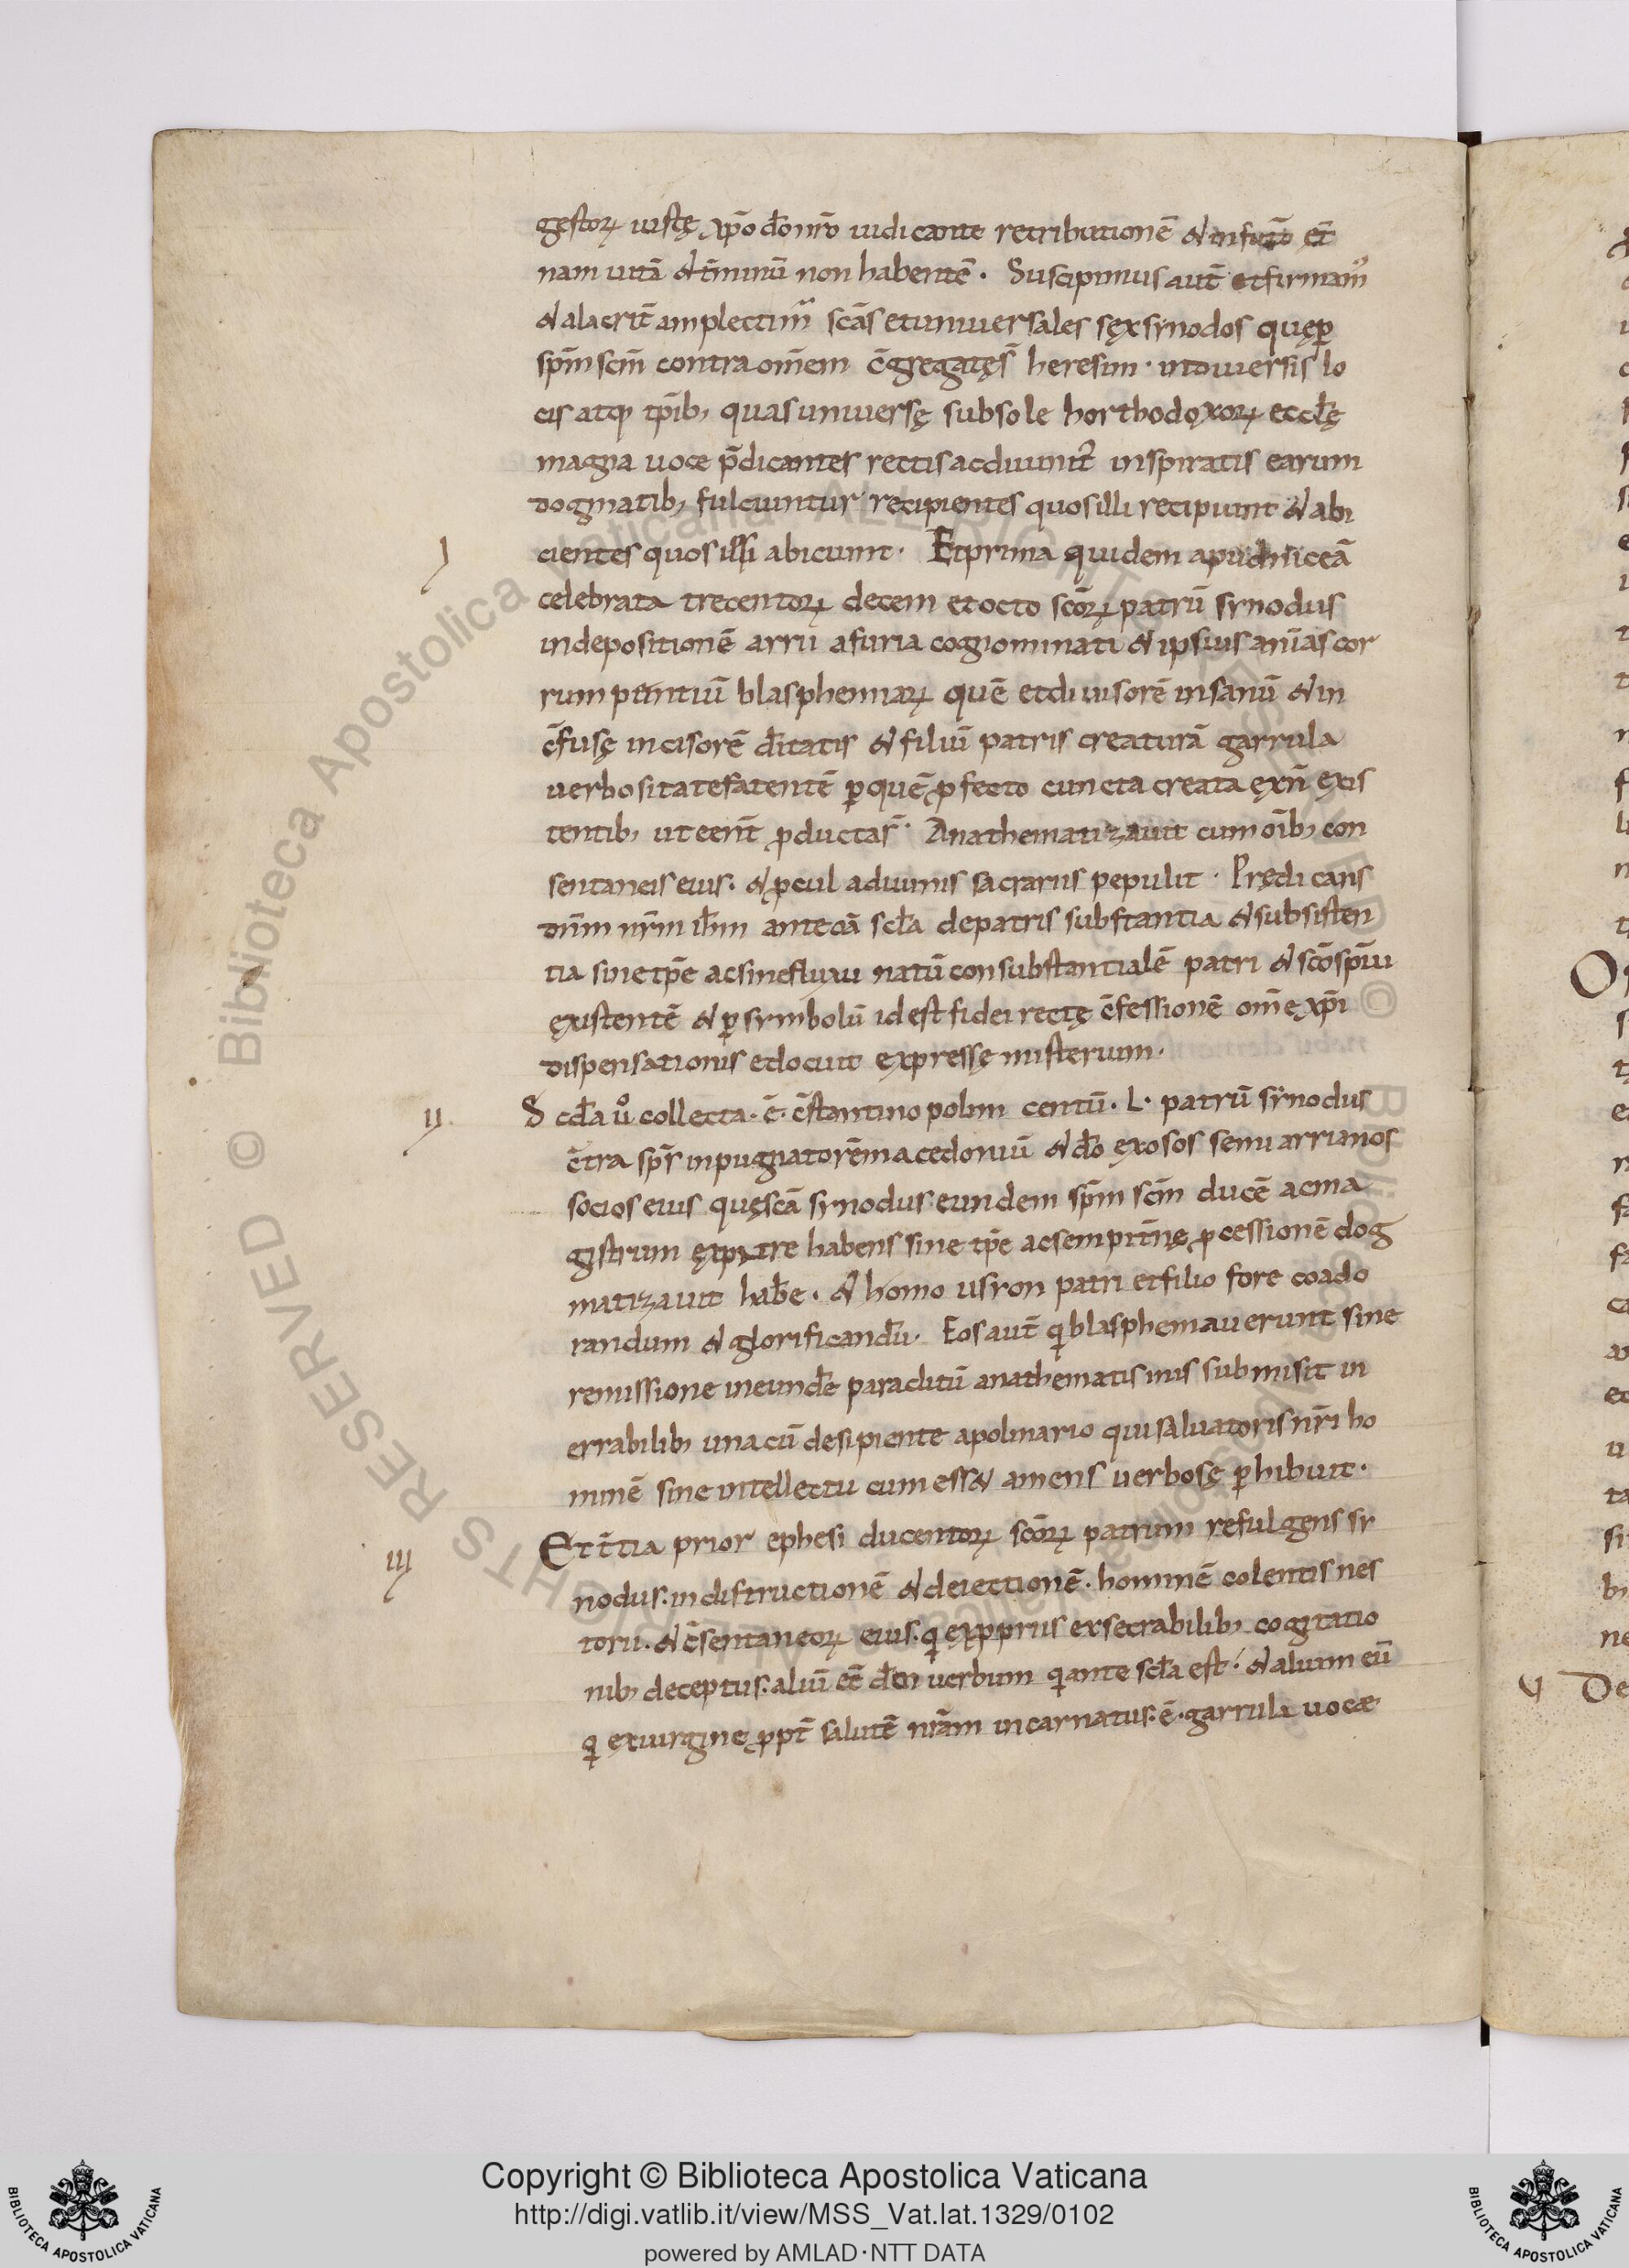 gestoꝝ iustę xp̄o d̄o nr̄o iudicante retributionē & in fut̄o et̄
nam uitā & t̄minū non habentē. Suscipimus aut̄ et firmam᷑
& alacrit̄ amplectim᷑ scās et uniuersales sęx synodos quę ꝑ
sp̄m scm̄ contra om̄em c̄gregatęs̄ heresim · in diuersis lo
cis atq; tp̄ib; quas uniuersę sub sole horthodoxoꝝ eccl̄ę
magna uoce p̄dicantes rectis ac diuinit᷑ inspiratis earum
dogmatib; fulciuntur recipientes quos illi recipiunt & abi
I cientes quos illi abiciunt · Et prima quidem apud niceā
celebrata trecentoꝝ decem et octo scōꝝ patrū synodus
in depositionē arrii a furia cognominati & ipsius anīas cor
rumpentiū blasphemiaꝝ quē et diuisorē insanū & in
c̄fusę incisorē d̄itatis & filiū patris creaturā garrula
uerbositate fatentē ꝑ quē ꝓfecto cuncta creata ęx n̄ exis
tentib; ut eent̄ ꝓducta s̄· Anathematizauit cum oīb; con
sentaneis eius. & ꝓcul a diuinis sacrariis pepulit · Prędicans
dn̄m nr̄m ih̄m ante oā scl̄a de patris substantia & subsisten
tia sine tp̄e ac sine fluxu natū consubstantialē patri & scō sp̄ui
ęxistentē & ꝑ symbolū id est fidei rectę c̄fessionē om̄e xp̄i
dispensationis edocuit expressę misterium·
II Scd̄a uº collecta · ē · c̄stantinopolim centū · L · patrū synodus
c̄tra sp̄s inpugnatorē macedoniū & d̄o exosos semiarrianos
socios eius quę scā synodus eundem sp̄m scm̄ ducē ac ma
gistrum ęx patre habens sine tp̄e ac sempit̄nę ꝓcessionē dog
matizauit hab̄e · & homo usyon patri et filio fore coado
randum & glorificandū · Eos aut̄ q̨ blasphemauerunt sine
remissione ineund̄e paraclitū anathematismis submisit in
errabilib; una cū desipiente apolinario qui saluatoris nr̄i ho
minē sine intellectu cum ess& amens uerbosę ꝑhibuit·
III Et t̄tia prior ephesi ducentoꝝ scōꝝ patrum refulgens sy
nodus · in distructionē & deiectionē · hominē colentis nes
torii · & c̄sentaneoꝝ eius · q̨ ex ꝓpriis exsecrabilib; cogitatio
nib; deceptus · aliū eē d̄en uerbum q̨ ante scl̄a est · & alium eū
q̨ ex uirgine ꝓpt̄ salutē nr̄am incarnatus · ē · garrula uoce
Copyright © Biblioteca Apostolica Vaticana
http://digi.vatlib.it/view/MSS_Vat.lat.1329/0102
powered by AMLAD·NTT DATA
BIBLIOTECA APOSTOLICA VATICANA
BIBLIOTECA APOSTOLICA VATICANA